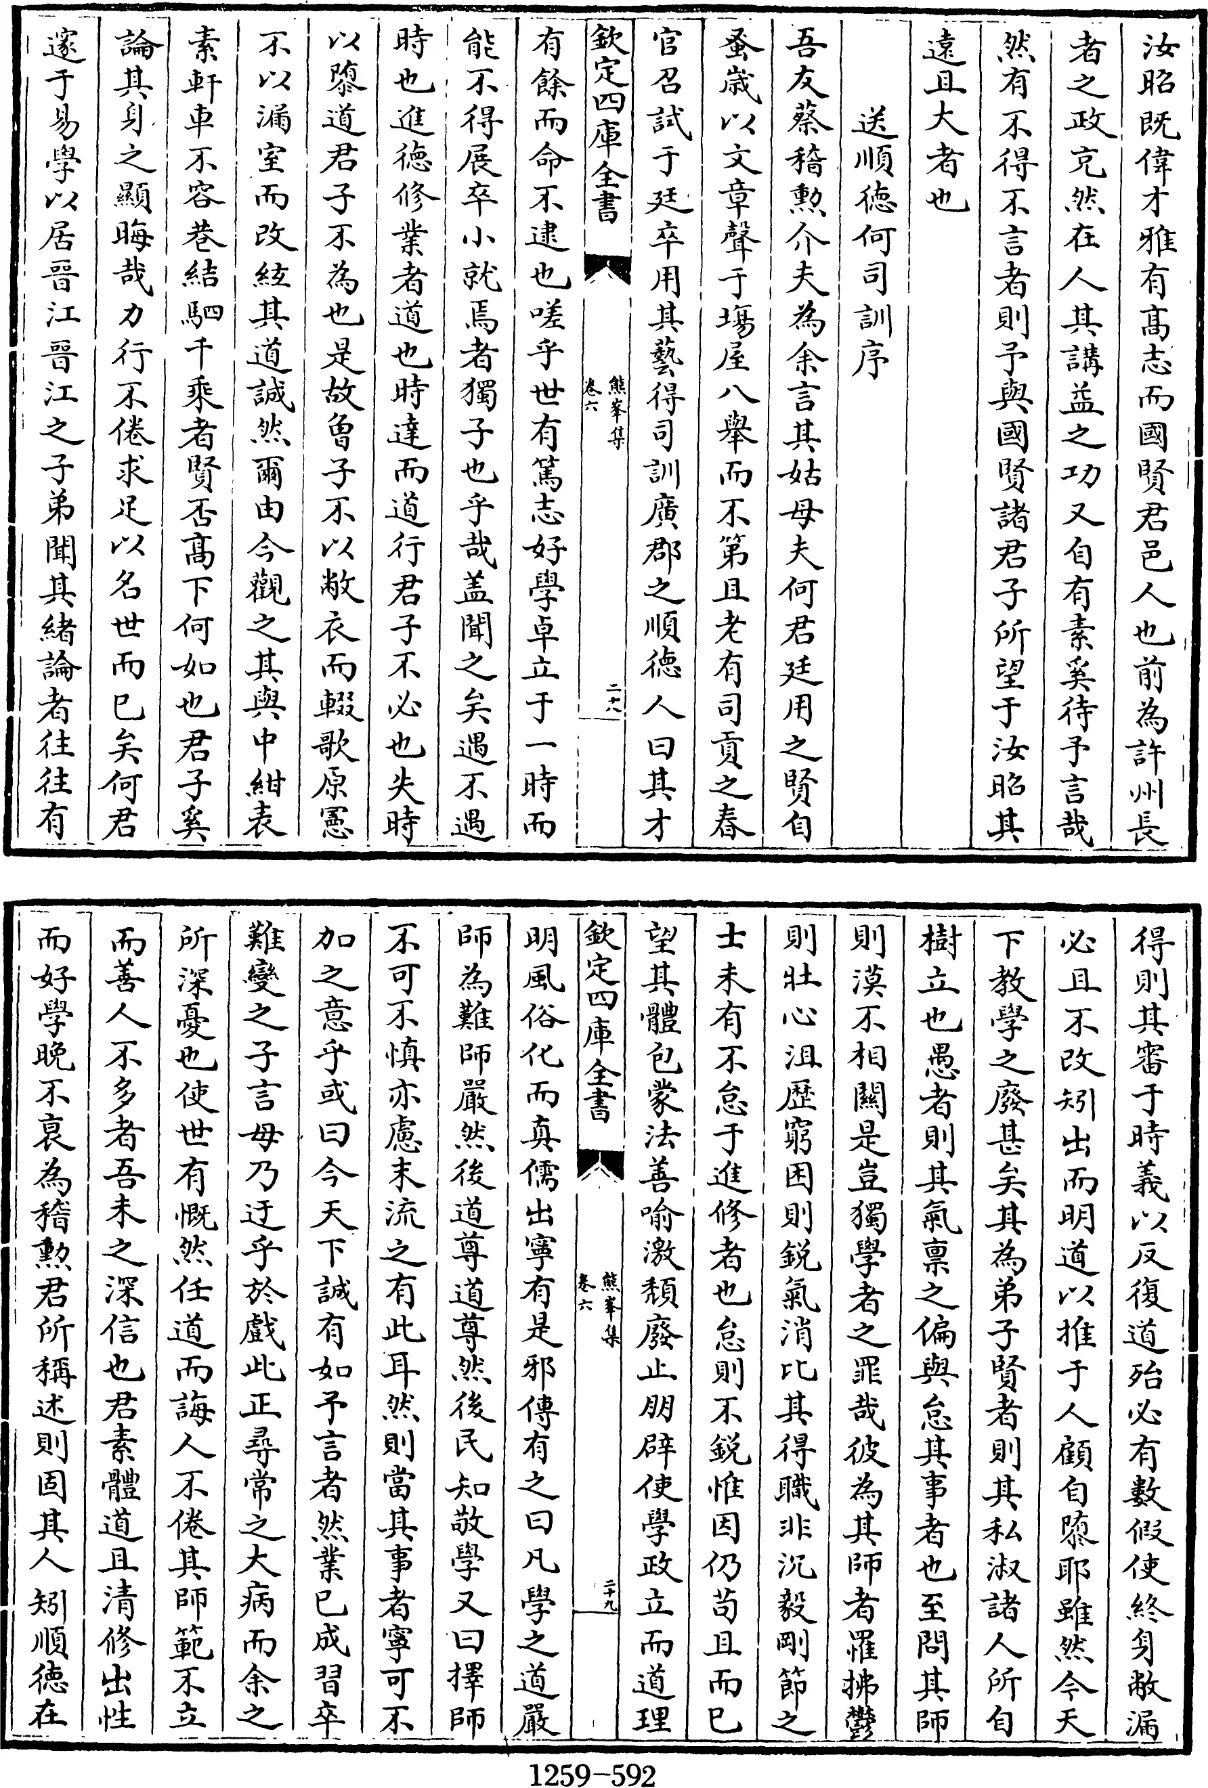 汝昭既偉才雅有髙志而國賢君邑人也前為許州長
者之政完然在人其講益之功又自有素奚待予言哉
然有不得不言者則予與國賢諸君子所望于汝昭其
遠且大者也
送順徳何司訓序
吾友蔡稽勲介夫為余言其姑母夫何君廷用之賢自
蚤嵗以文章聲于塲屋八舉而不第且老有司貢之春
官召試于廷卒用其藝得司訓廣郡之順徳人曰其才
欽定四庫全書
熊峯集
卷六
二十八
有餘而命不逮也嗟乎世有篤志好學卓立于一時而
能不得展卒小就焉者獨子也乎哉盖聞之矣遇不遇
時也進徳修業者道也時達而道行君子不必也失時
以隳道君子不為也是故曾子不以敝衣而輟歌原憲
不以漏室而改絃其道誠然爾由今觀之其與中紺表
素軒車不容巷結駟千乘者賢否髙下何如也君子奚
論其身之顯晦哉力行不倦求足以名世而已矣何君
邃于易學以居晉江晉江之子弟聞其緒論者往往有
得則其審于時義以反復道殆必有數假使終身敝漏
必且不改矧出而明道以推于人顧自隳耶雖然今天
下教學之廢甚矣其為弟子賢者則其私淑諸人所自
樹立也愚者則其氣禀之偏與怠其事者也至問其師
則漠不相關是豈獨學者之罪哉彼為其師者罹拂鬱
則壯心沮歴窮困則銳氣消比其得職非沉毅剛節之
士未有不怠于進修者也怠則不銳惟因仍苟且而已
望其體包蒙法善喻激頹廢止朋辟使學政立而道理
欽定四庫全書
熊峯集
卷六
二十九
明風俗化而真儒出寧有是邪傳有之曰凡學之道嚴
師為難師嚴然後道尊道尊然後民知敬學又曰擇師
不可不慎亦慮末流之有此耳然則當其事者寧可不
加之意乎或曰今天下誠有如予言者然業已成習卒
難變之子言毋乃迂乎於戲此正尋常之大病而余之
所深憂也使世有慨然任道而誨人不倦其師範不立
而善人不多者吾未之深信也君素體道且清修出性
而好學晚不衰為稽勲君所稱述則固其人矧順徳在
1259-592